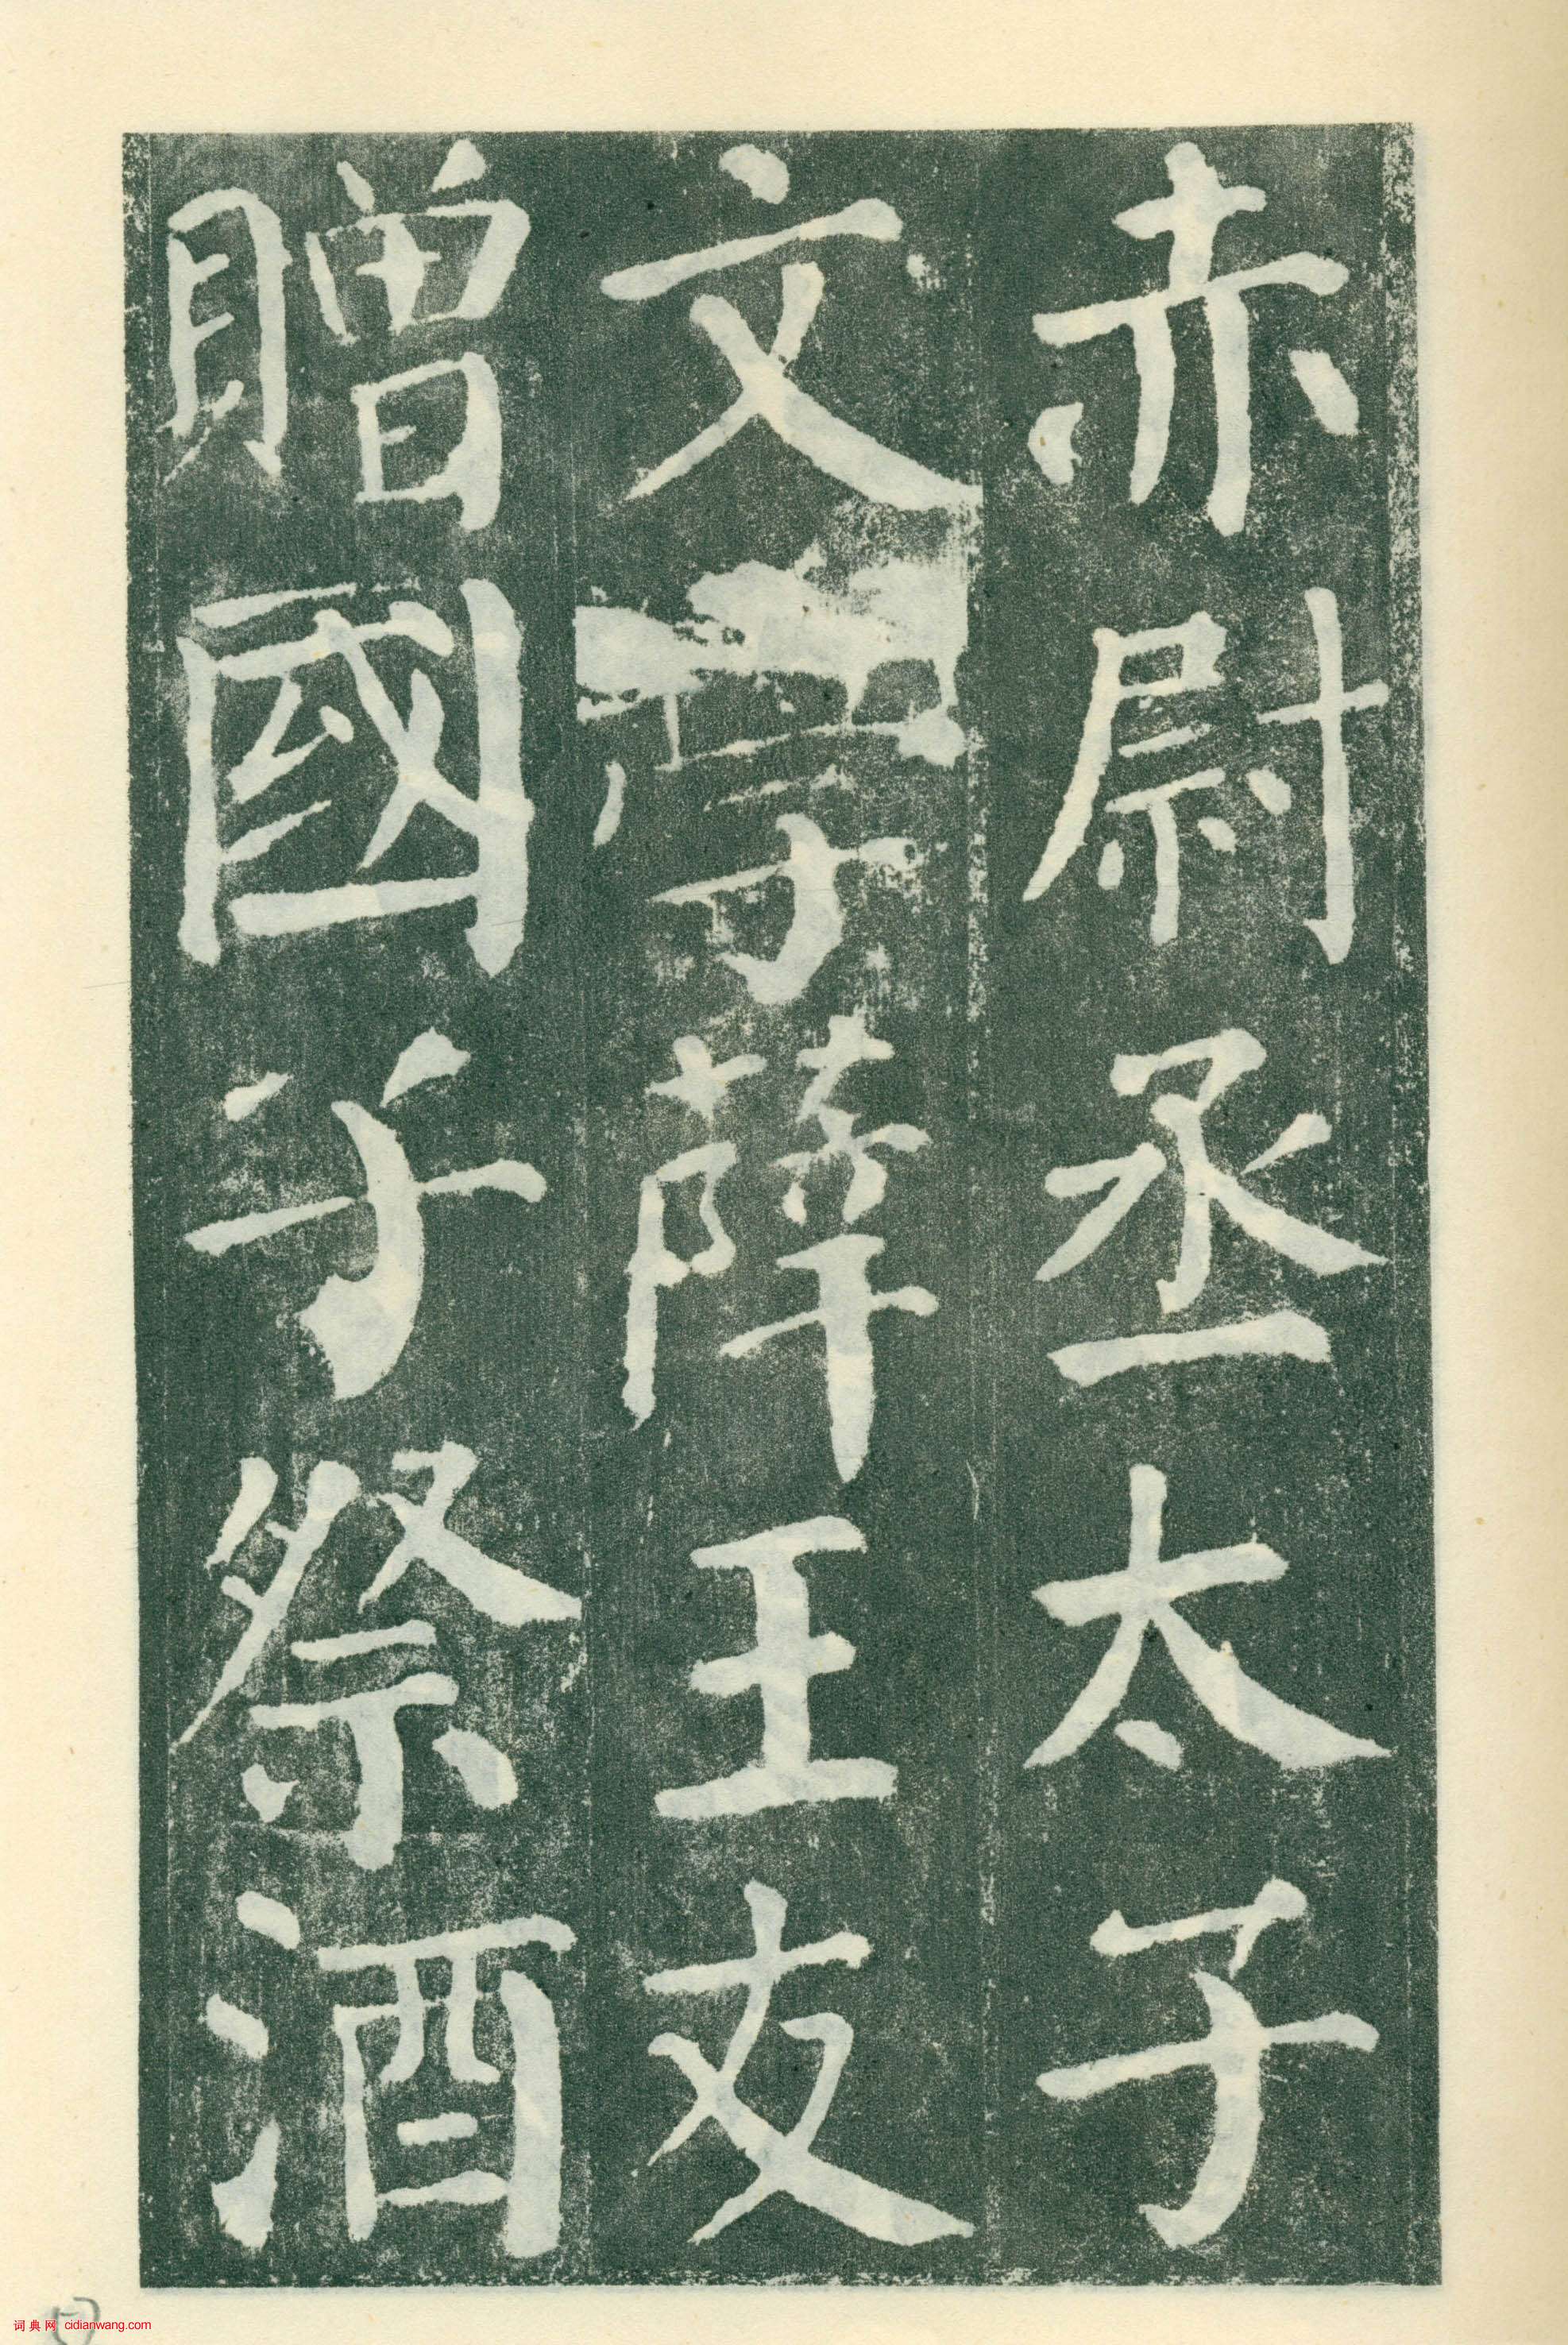 赤尉丞太子
文學薛王友
贈國子祭酒
词典网 cidianwang.com